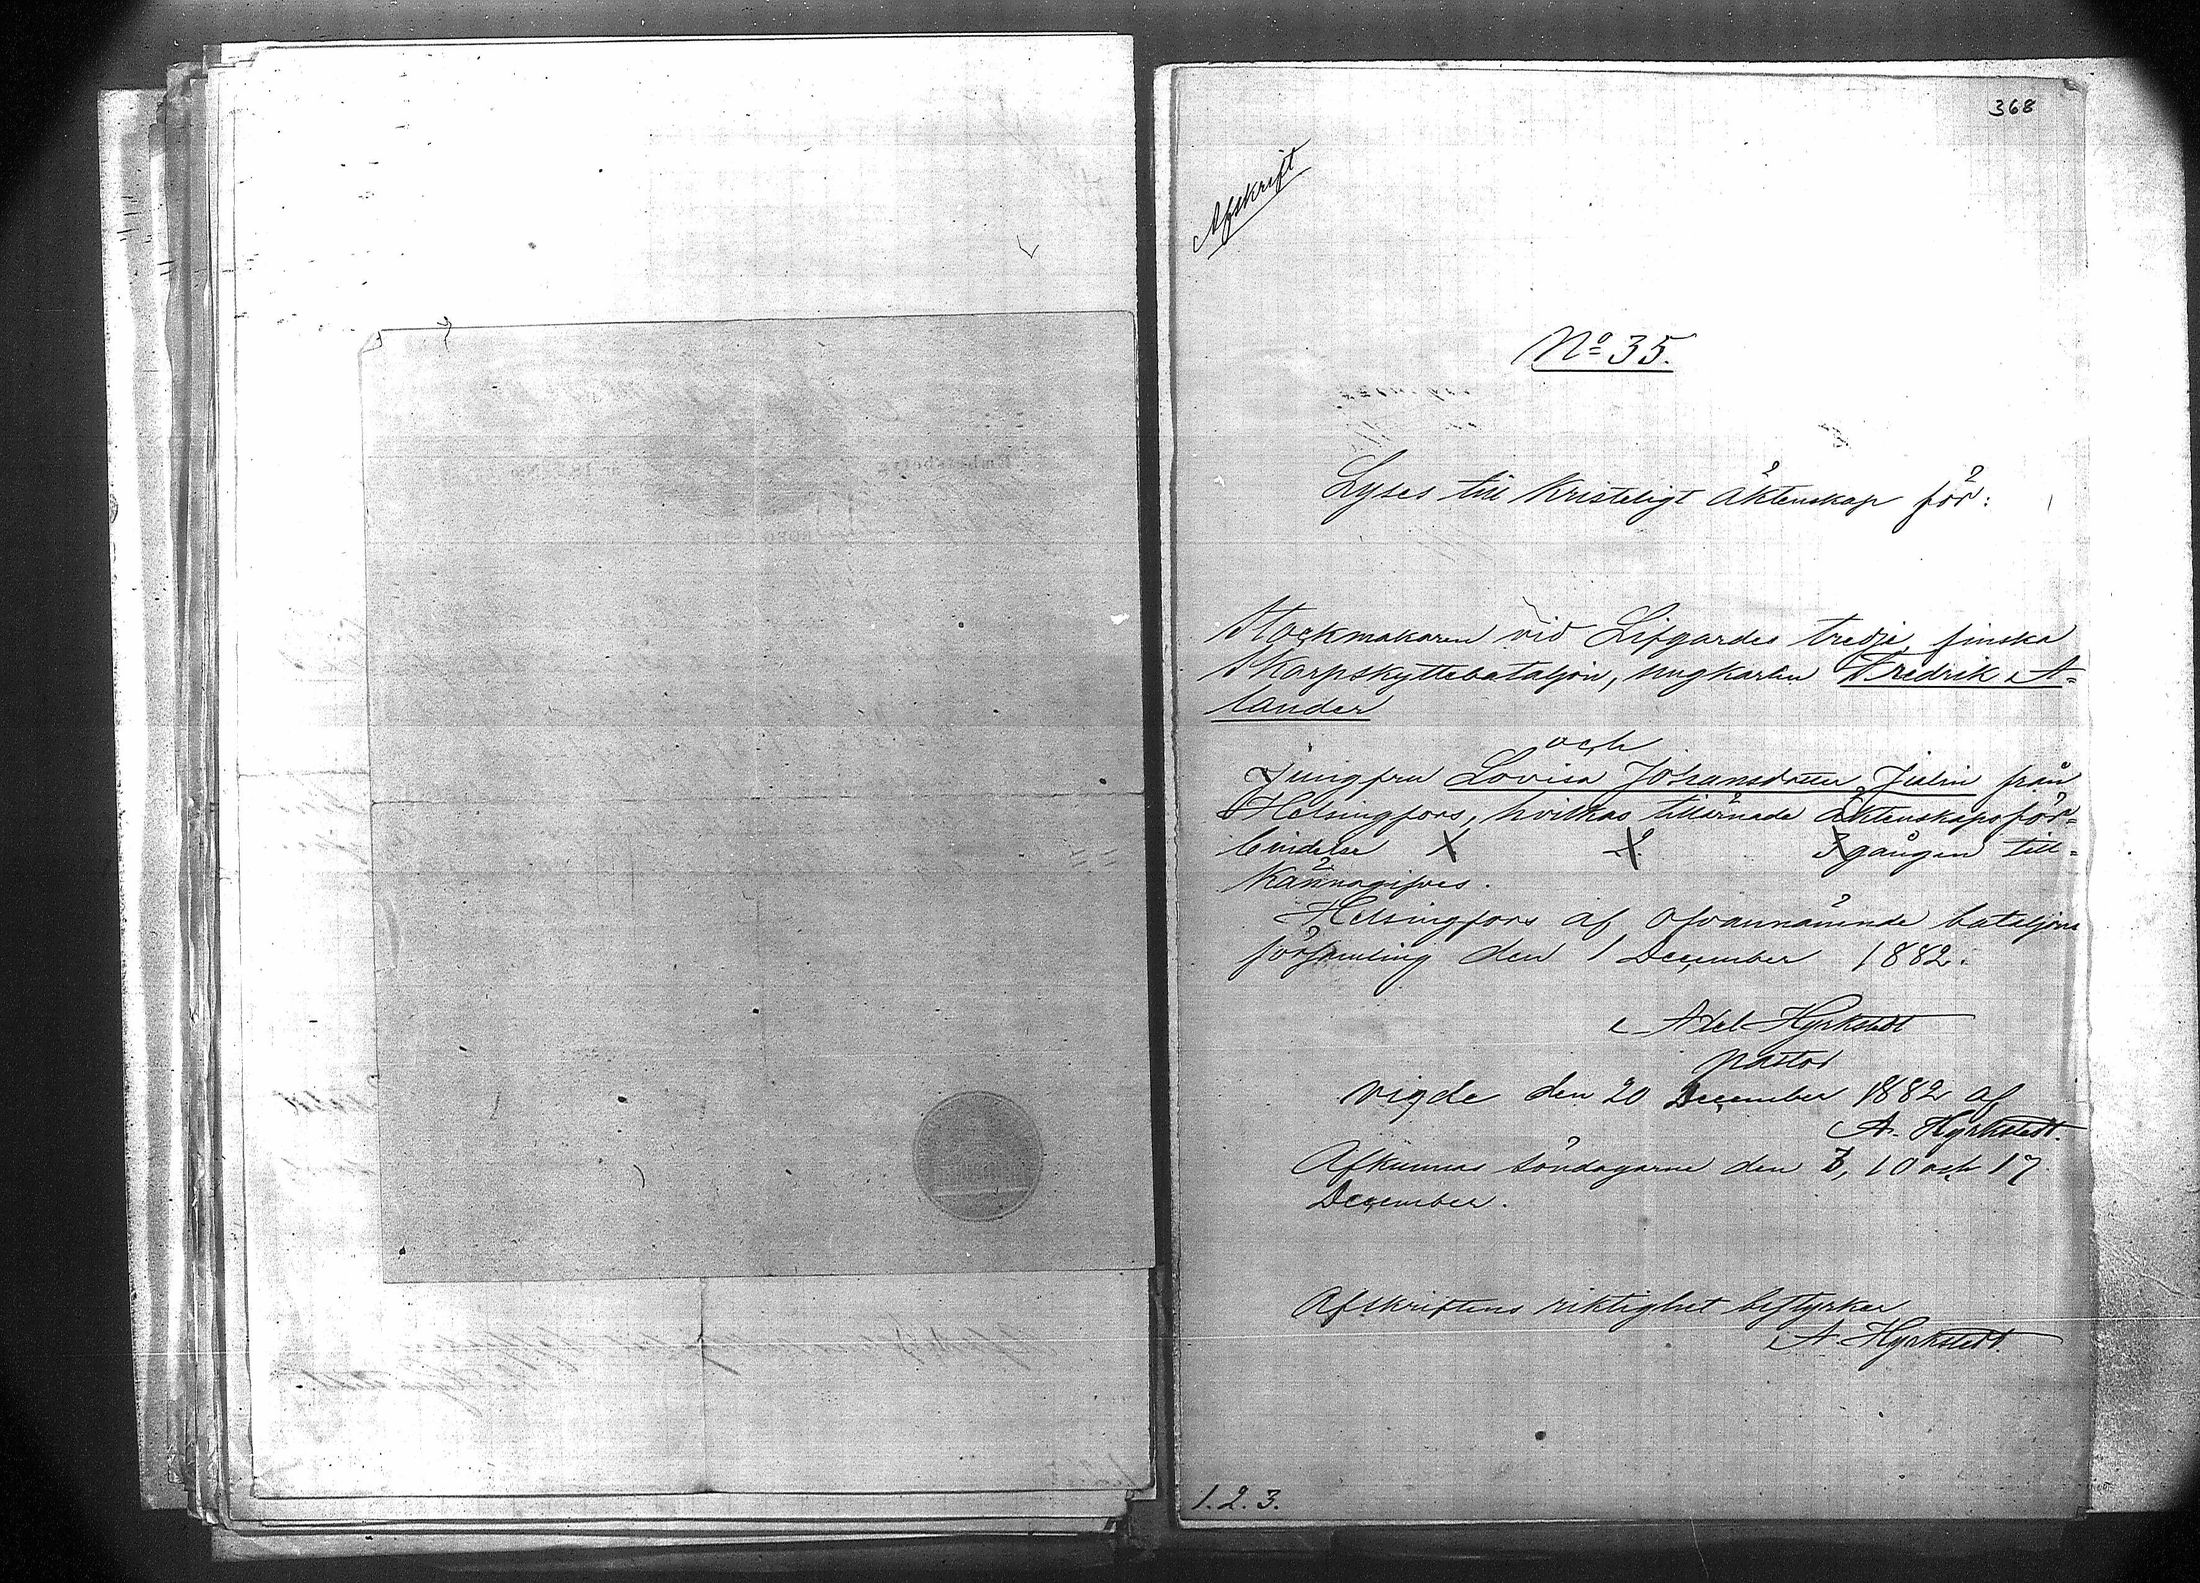 368
Afskrift
No 35.
Lyses till Kristeligt Äktenskap för:
Stockmakaren vid Lifgardes tredje finska
Skarpskyttebataljon, ungkarlen Fredrik A-
lander
och
Jungfru Lovisa Johansdotter Jalin från
Helsingfors, hvilkas tillärnade äktenskapsför-
bindelse 1 2 3 gången till-
kännagifves.
Helsingfors af ofvannämnde bataljons
församling den 1 December 1882.
Axel Hyrkstedt
pastor
Vigde den 20 December 1882 af
A. Hyrkstedt.
Afkunnas söndagarne den 3, 10 och 17
December.
Afskriftens riktighet bestyrker
A. Hyrkstedt.
1. 2. 3.